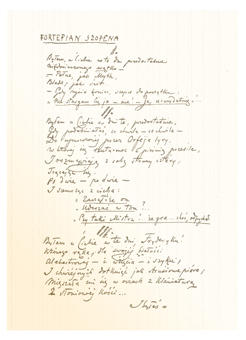 FORTEPIAN SZOPENA
I
Byłem u Ciebie w te dni przedostatnie
Niedocieczonego wątku —
— Pełne, jak Mythe,
Blade, jak świt
— Gdy życia koniec szepce do początku:
"Nie stargam Cię ja — nie — Ja, u-wydatnię!"
II
Byłem u Ciebie w dni te, przedostatnie,
Gdy podobniałeś, co chwila — co chwila —
Do upuszczonej przez Orfeja liry,
W której się rzutu-moc z pieśnią przesila,
I rozmawiają z sobą struny cztéry,
Trącając się,
Po dwie — po dwie —
I szemrząc z cicha:
"Zacząłże on
Uderzać w ton?
Czy taki Mistrz! że gra — choć odpycha?"
III
Byłem u Ciebie w te dni, Fryderyku!
Którego ręka, dla swojej białości
Alabastrowej — i wzięcia — i szyku,
I chwiejnych dotknięć jak strusiowe pióro,
Mięszała mi się w oczach z klawiaturą
Z słoniowej kości